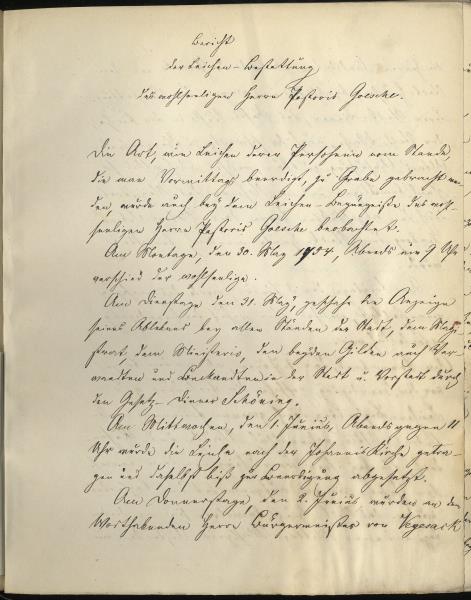 Bericht
der Leichen-Bestattung
des wohlseeligen Herrn Pastoris Goesche.
Die Art, wie Leichen derer Persohnen vom Stande,
die man Vormittags beerdigt, zu Grabe gebracht wer-
den, wurde auch bey dem Leichen-Begängniße des wohl-
seeligen Herrn Pastoris Goesche beobachtet.
Am Montage, den 30. May 1754, Abends um 9 Uhr
verschied der wohlseelige.
Am Dienstage den 31. May, geschahe die Anzeige
seines Ablebens bey allen Ständen der Stadt, dem Magi
strat, dem Ministerio, den beyden Gilden auch Ver-
wandten und Bekandten in der Stadt u. Vorstadt durch
den Gesetz-Diener Schöning.
Am Mittwochen, den 1. Junius, Abends gegen 11
Uhr wurde die Leiche nach der Johannis Kirche getra-
gen und daselbst biß zur Beerdigung abgesetzt.
Am Donnerstage, den 2. Junius wurden an den
Worthabenden Herrn Bürgermeister von Vegesack